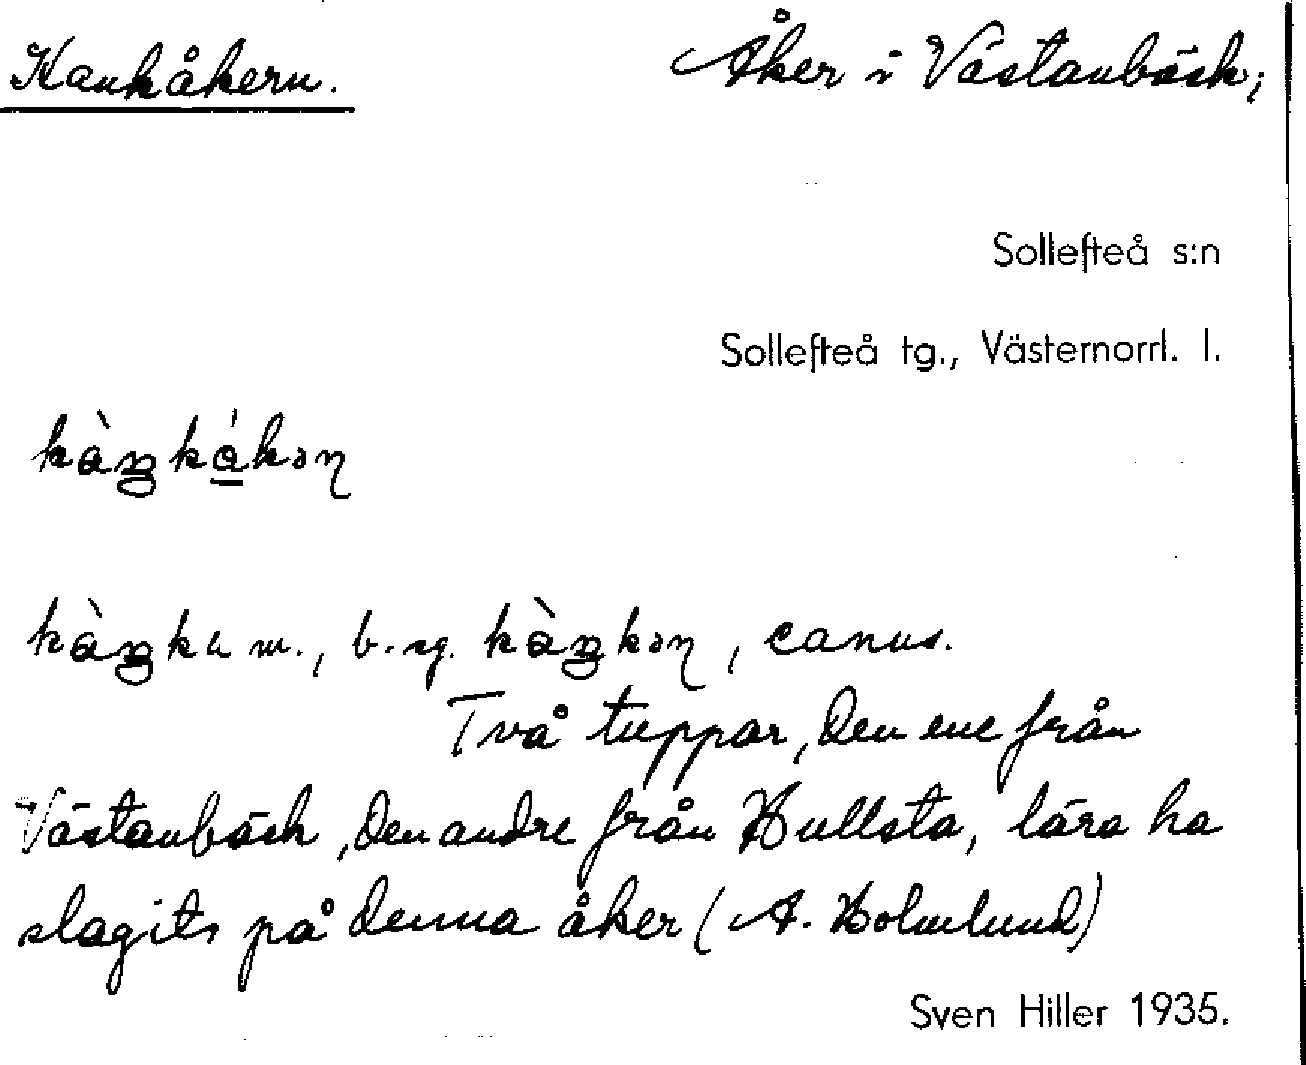 Kankåkern.
Åker i Västanbäck,
Sollefteå s:n
Sollefteå tg., Västernorrl. l.
kàŋkákəɳ
kàŋku m., b. sg. kàŋkəɳ, canus.
Två tuppar, den ene från
Västanbäck, den andre från Hullsta, lära ha
slagits på denna åker (A. Holmlund)
Sven Hiller 1935.